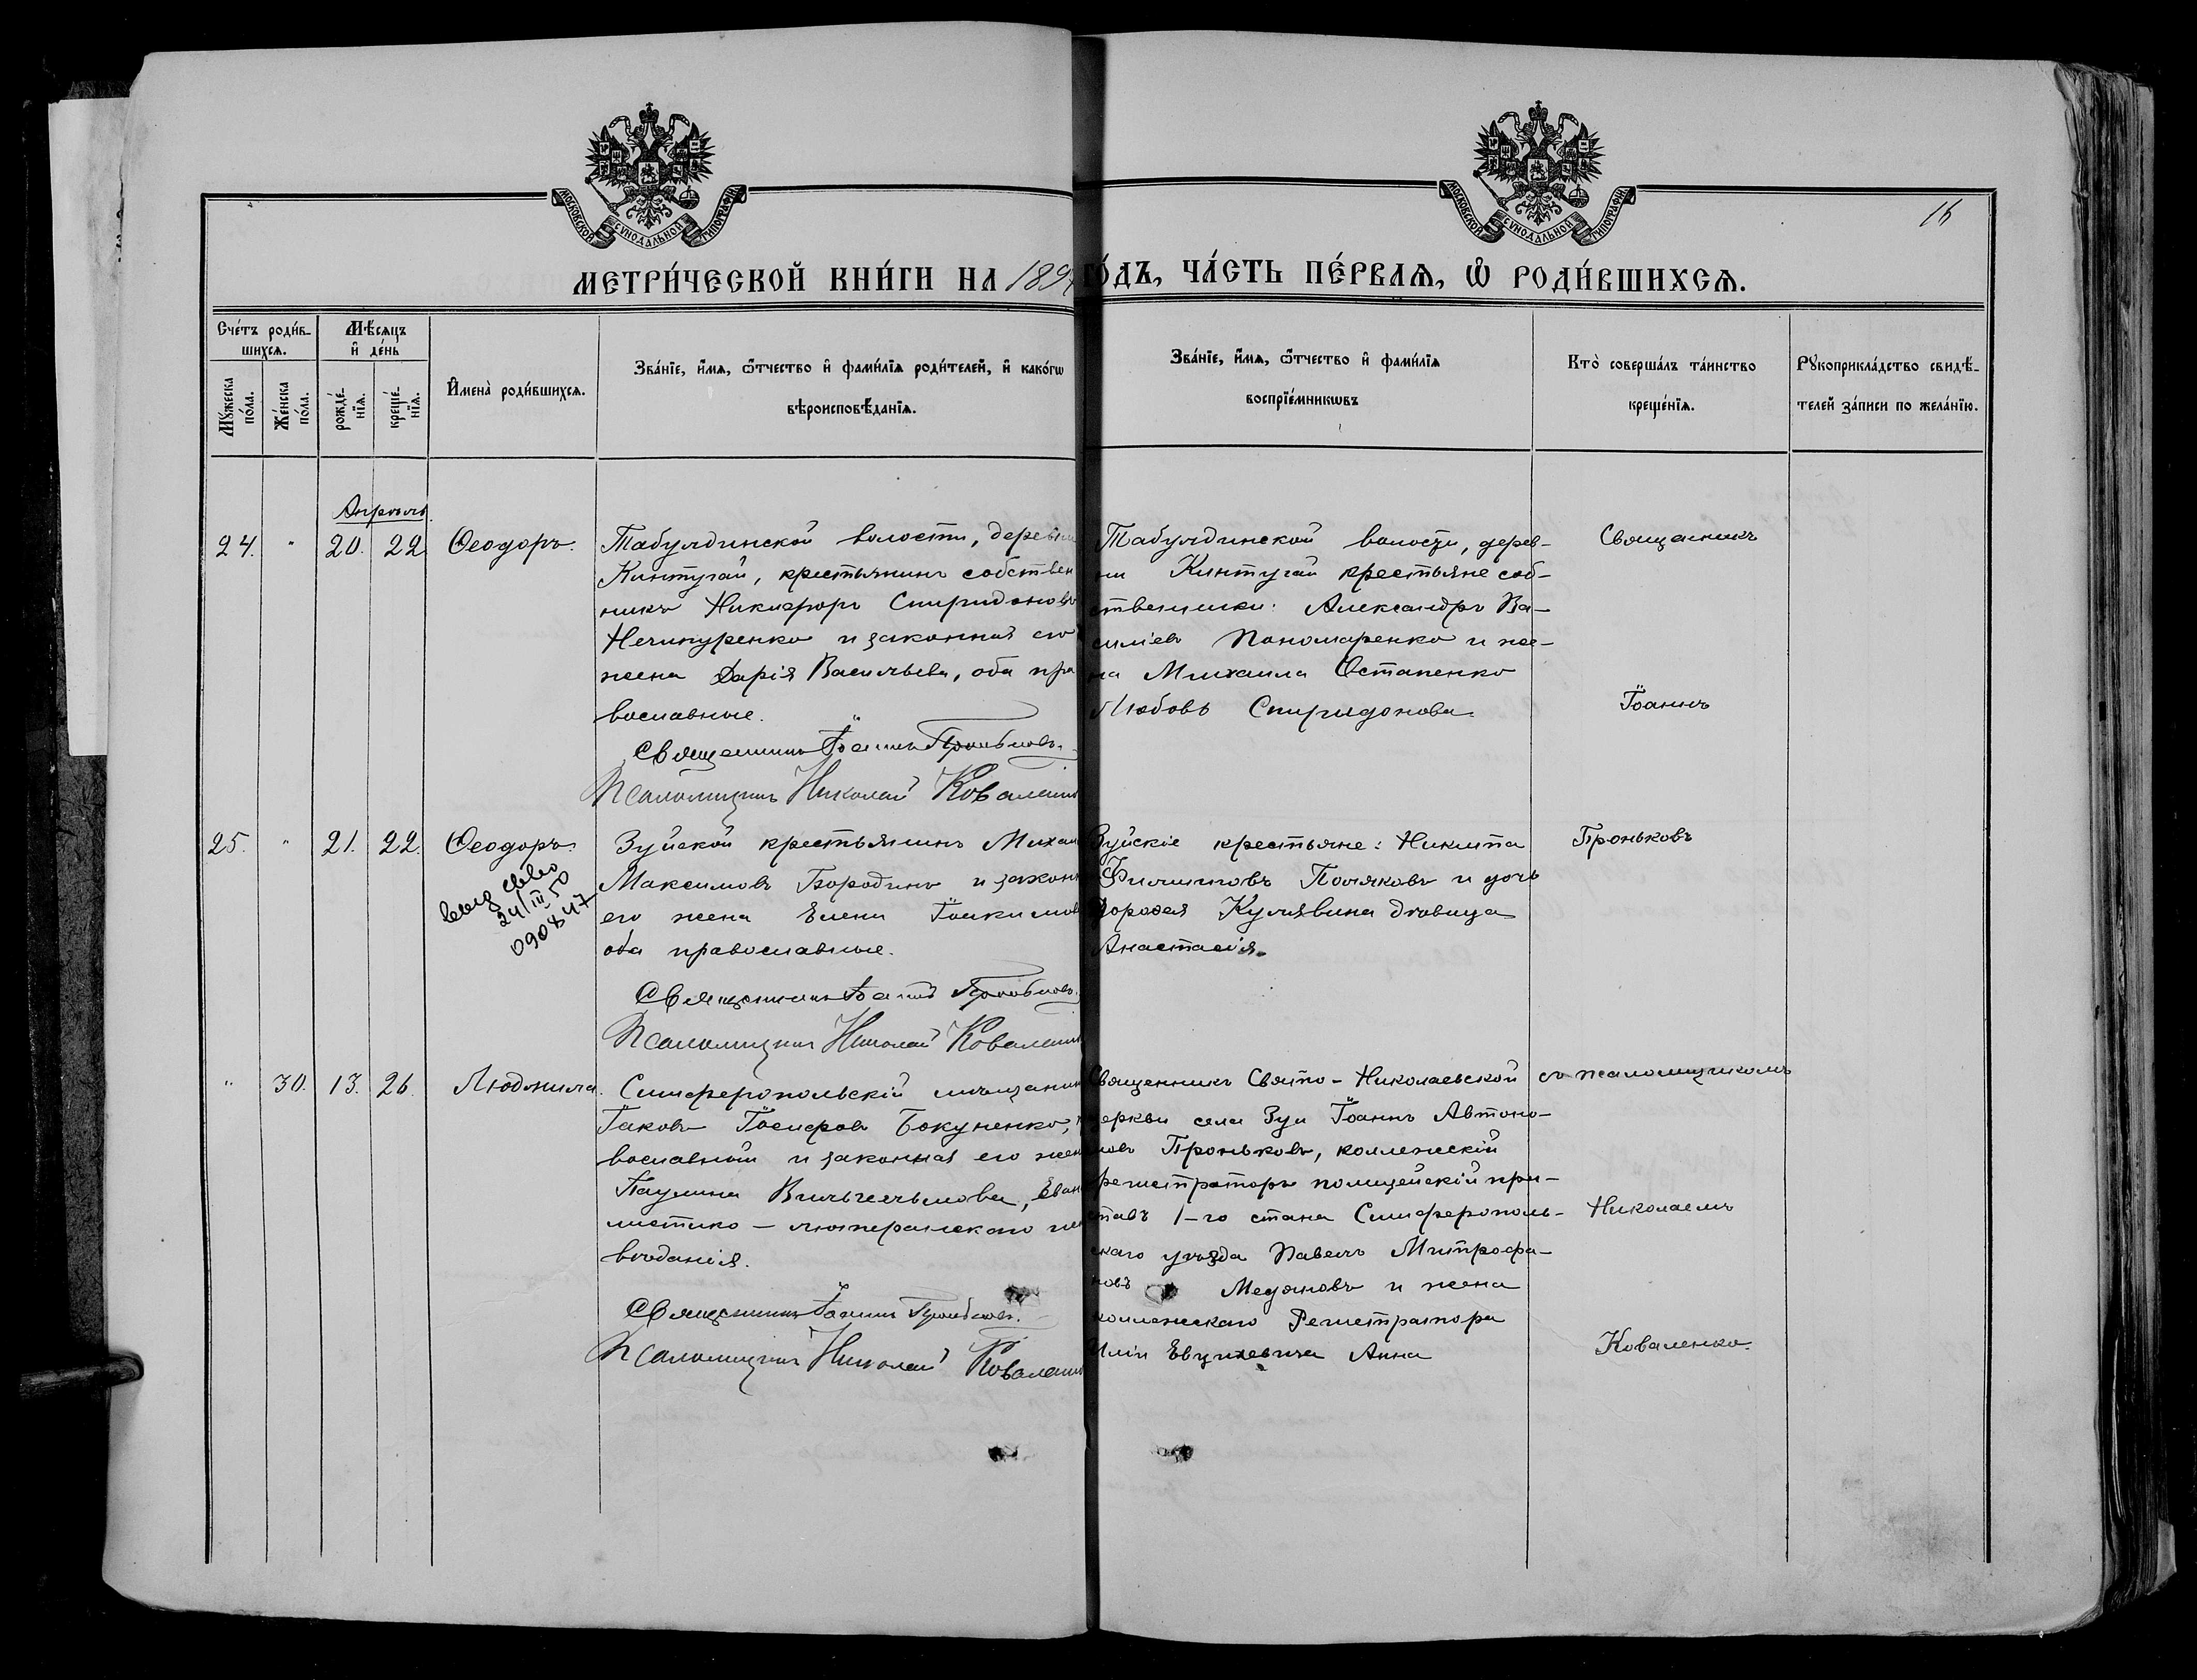 МОСКОВСКОЙ СѴНОДАЛЬНОЙ ТИПОГРАФІИ
МОСКОВСКОЙ СѴНОДАЛЬНОЙ ТИПОГРАФІИ
16
МЕТРИ́ЧЕСКОЙ КНИ́ГИ НА 189
ГО́ДЪ, ЧА́СТЬ ПЕ́РВАѦ, Ѡ҆ РОДИ́ВШИХСѦ.
Сче́тъ роди́в-
шихсѧ.
Мꙋ́жеска по́ла.
Же́нска по́ла.
Мѣ́сѧцъ
и҆ де́нь
рожде́-
нїѧ.
креще́-
нїѧ.
И҆мена̀ роди́вшихсѧ.
Зва́нїе, и҆́мѧ, ѻ҆́тчество и҆ фами́лїѧ роди́телей, и҆ како́гѡ
вѣроисповѣ́данїѧ.
Зва́нїе, и҆́мѧ, ѻ҆́тчество и҆ фами́лїѧ
воспрїе́мникѡвъ
Кто̀ соверша́лъ та́инство
креще́нїѧ.
Рꙋкоприкла́дство свидѣ́-
телей за́писи по жела́нїю.
Апрѣль.
24. " 20. 22. Ѳеодоръ.
Табулдинской волости, деревни
Кинтугай, крестьянинъ собствен
никъ Никифоръ Спиридоновъ
Нечипуренко и законная его
жена Дарія Васильева, оба пра
вославные.
Священникъ Іоаннъ Проньковъ.
Псаломщикъ Николай Коваленк
Табулдинской волости, дерев-
ни Кинтугай крестьяне соб-
ственники: Александръ Ва-
силіевъ Пономаренко и же-
на Михаила Остапенко
Любовь Спиридонова.
Священникъ
Іоаннъ
25. " 21. 22. Ѳеодоръ.
выд св-во
24/III 50
090847
Зуйской крестьянинъ Михаи
Максимовъ Бородинъ и закон
его жена Елена Іоакимов
оба православные.
Священникъ Іоаннъ Проньковъ.
Псаломщикъ Николай Коваленк
Зуйскіе крестьяне: Никита
Филипповъ Поляковъ и дочь
Дорофея Кулявина дѣвица
Анастасія.
Проньковъ
" 30. 13. 26. Людмила.
Симферопольскій мѣщанин
Іаковъ Іосифовъ Бокуненко,
вославный и законная его жен
Паулина Вильгельмова, Еван
листико-лютеранскаго
вѣданія.
Священникъ Іоаннъ Проньковъ.
Псаломщикъ Николай Коваленк
Священникъ Свято-Николаевской
церкви села Зуи Іоаннъ Автоно-
мовъ Проньковъ, коллежскій
регистраторъ полицейскій при-
ставъ 1-го стана Симферополь-
скаго уѣзда Павелъ Митрофа-
новъ Медяновъ и жена
коллежскаго Регистратора
Иліи Евуцкевича Анна
съ псаломщикомъ
Николаемъ
Коваленко.